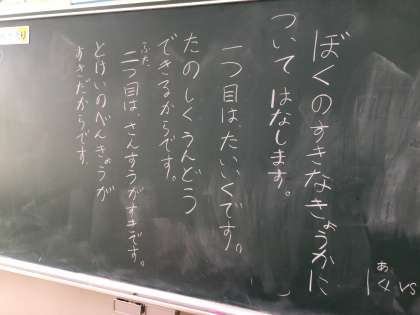 ぼくのすきなきょうかに
ついてはなします。
一つ目は、たいくです。
たのしくうんどう
できるからです。
二つ目は、さんすうがすきです。
ふた
とけいのべんきょうが
すきだからです。
あ
vs